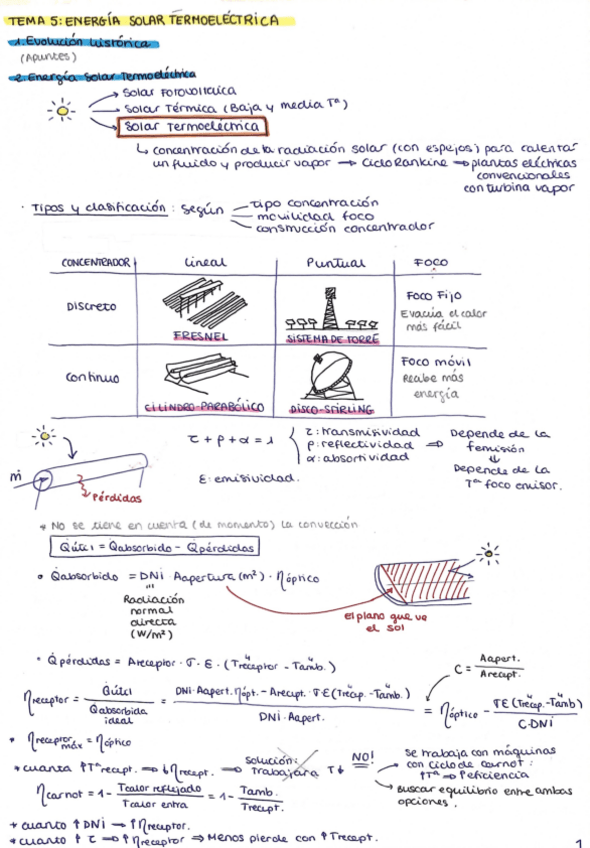 TEMA 5: ENERGÍA SOLAR TERMOELÉCTRICA
1. Evolución histórica
(Apuntes)
2. Energía Solar Termoeléctrica
Solar Fotovoltaica
Solar Térmica (Baja y media Tª)
Solar Termoeléctrica
↳ concentración de la radiación solar (con espejos) para calentar
un fluido y producir vapor → Ciclo Rankine → plantas eléctricas
convencionales
con turbina vapor
· Tipos y clasificación: según
tipo concentración
movilidad foco
construcción concentrador
CONCENTRADOR Lineal Puntual FOCO
Discreto
FRESNEL
SISTEMA DE TORRE
Foco Fijo
Evacua el calor
más fácil
Continuo
CILINDRO-PARABÓLICO
DISCO-STIRLING
Foco móvil
Recibe más
energía
ṁ
Pérdidas
τ + ρ + α = 1
τ: transmisividad
ρ: reflectividad
α: absortividad
⇒ Depende de la
λemisión
⇓
Depende de la
Tª foco emisor.
ε: emisividad.
* No se tiene en cuenta (de momento) la convección
Q̇útil = Q̇absorbido - Q̇pérdidas
• Q̇absorbido = DNI · Aapertura (m²) · ηóptico
Radiación
normal
directa
(W/m²)
El plano que ve
el sol
• Q̇pérdidas = Areceptor · σ · ε · (T⁴receptor - T⁴amb.)
C = Aapert. / Arecept.
ηreceptor = Q̇útil / Q̇absorbida ideal = DNI · Aapert. ηópt. - Arecept. · σ ε (T⁴recep. - T⁴amb.) / DNI · Aapert. = ηóptico - σ ε (T⁴recep. - T⁴amb) / C · DNI
* ηreceptor máx = ηóptico
* cuanta ↑Tª recept. → ↓ηrecept. → Solución: trabajar a T↓ NO!
Se trabaja con máquinas
con ciclo de carnot:
↑Tª → ↑eficiencia
Buscar equilibrio entre ambas
opciones.
ηcarnot = 1 - Tcalor reflejado / Tcalor entra = 1 - Tamb. / Trecept.
* cuanto ↑ DNI → ↑ηreceptor.
* cuanto ↑ C ⇒ ↑ηreceptor ⇒ Menos pierde con ↑Trecept.
1